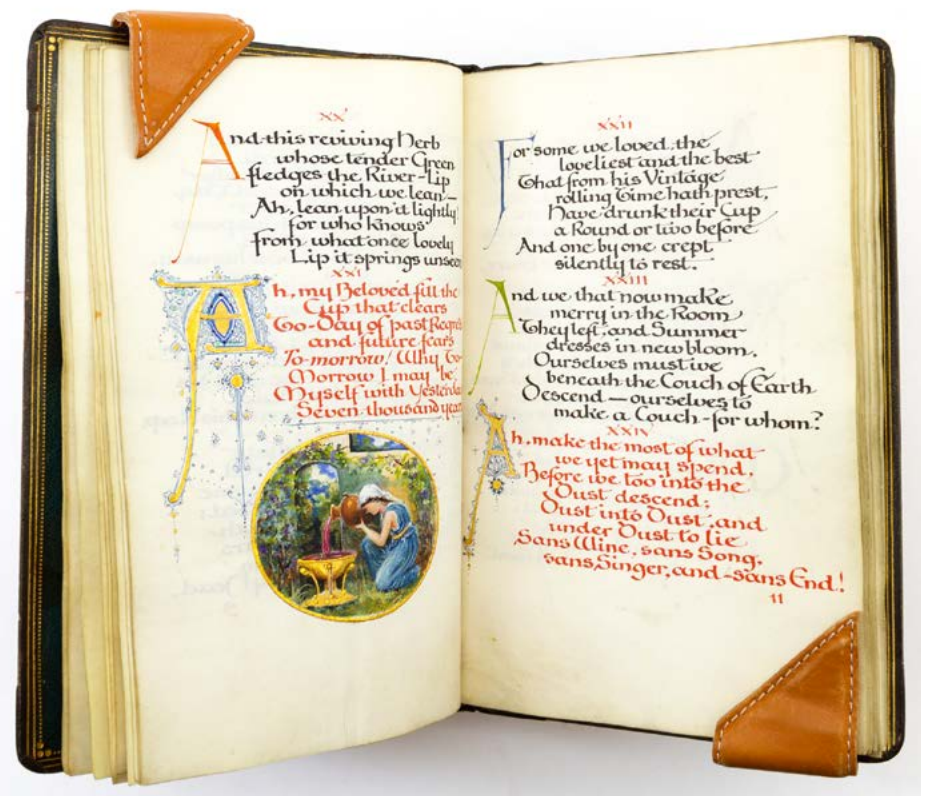 XX
And this reviving Herb
whose tender Green
fledges the River-Lip
on which we lean—
Ah, lean upon it lightly
for who knows
from what once lovely
Lip it springs unseen
XXI
Ah, my Beloved fill the
Cup that clears
To-Day of past Regrets
and future fears
To-morrow! Why To-
Morrow I may be
Myself with Yesterday
Seven thousand years
XXII
For some we loved, the
loveliest and the best
That from his Vintage
rolling Time hath prest,
Have drunk their Cup
a Round or two before
And one by one crept
silently to rest.
XXIII
And we that now make
merry in the Room
They left, and Summer
dresses in new bloom,
Ourselves must we
beneath the Couch of Earth
Descend — ourselves to
make a Couch - for whom?
XXIV
Ah, make the most of what
we yet may spend,
Before we too into the
Dust descend;
Dust into Dust, and
under Dust to lie
Sans Wine, sans Song,
sans Singer, and - sans End!
11